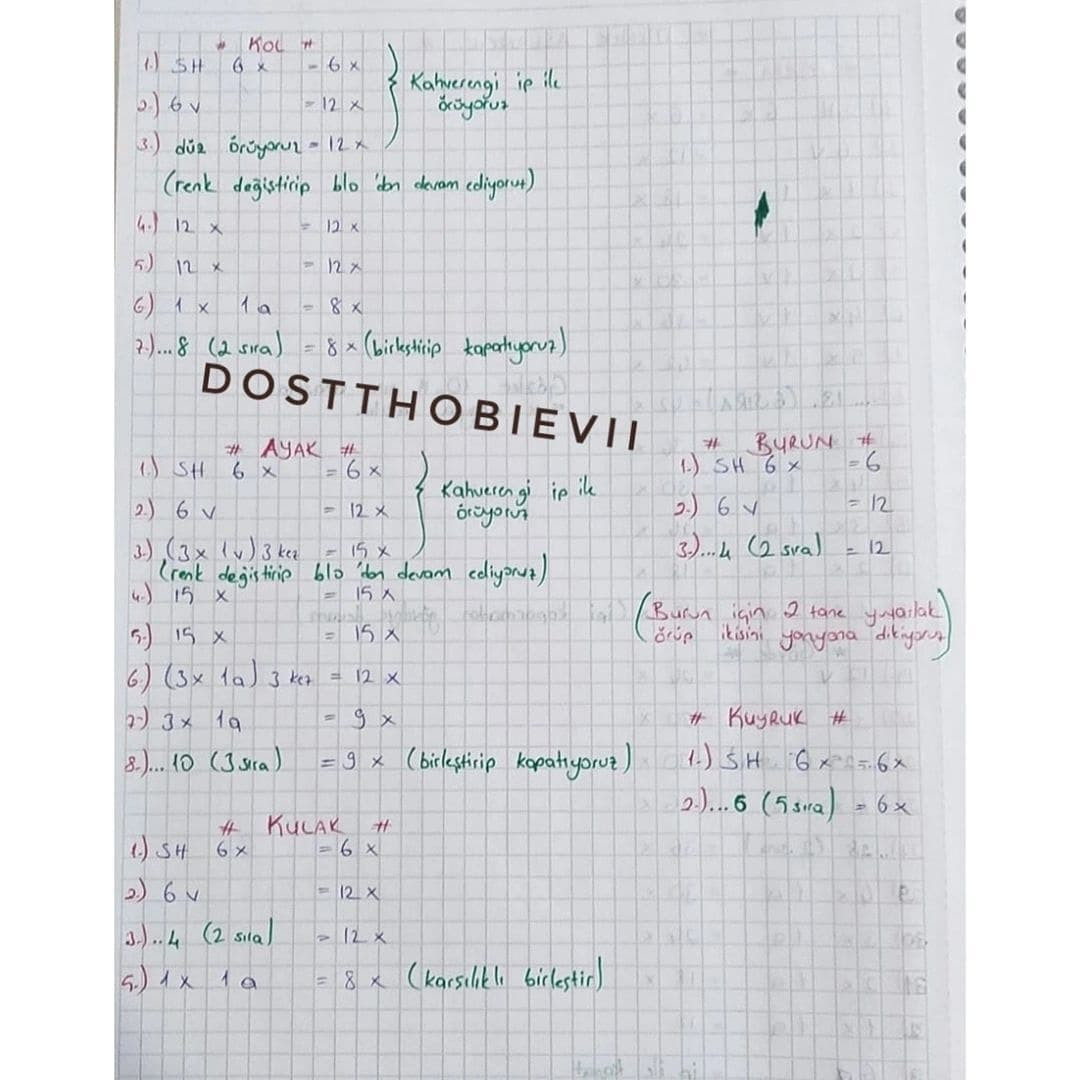 # KOL #
1.) SH 6 x = 6 x
2.) 6 v = 12 x
3.) düz örüyoruz = 12 x
Kahverengi ip ile
örüyoruz
(renk değiştirip blo 'dan devam ediyoruz)
4.) 12 x = 12 x
5.) 12 x = 12 x
6.) 1 x 1a = 8 x
7.)...8 (2 sıra) = 8 x (birleştirip kapatıyoruz)
DOSTTHOBIEVII
# AYAK #
1.) SH 6 x = 6 x
2.) 6 v = 12 x
3.) (3x 1v) 3 kez = 15 x
Kahverengi ip ile
örüyoruz
(renk değiştirip blo 'dan devam ediyoruz)
4.) 15 x = 15 x
5.) 15 x = 15 x
6.) (3x 1a) 3 kez = 12 x
7.) 3x 1a = 9 x
8.)...10 (3 sıra) = 9 x (birleştirip kapatıyoruz)
# BURUN #
1.) SH 6 x = 6
2.) 6 v = 12
3.)...4 (2 sıra) = 12
(Burun için 2 tane yuvarlak
örüp ikisini yanyana dikiyoruz)
# KUYRUK #
1.) SH 6 x = 6 x
2.)...6 (5 sıra) = 6 x
# KULAK #
1.) SH 6 x = 6 x
2.) 6 v = 12 x
3.)..4 (2 sıra) = 12 x
5.) 1x 1a = 8 x (karsılıklı birleştir)